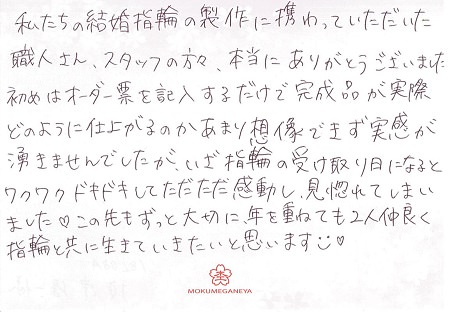 私たちの結婚指輪の製作に携わっていただいた
職人さん、スタッフの方々、本当にありがとうございました
初めはオーダー票を記入するだけで完成品が実際
どのように仕上がるのかあまり想像できず実感が
湧きませんでしたが、いざ指輪の受け取り日になると
ワクワクドキドキしてただただ感動し、見惚れてしまい
ました♡この先もずっと大切に、年を重ねても2人仲良く
指輪と共に生きていきたいと思います☺♡
MOKUMEGANEYA